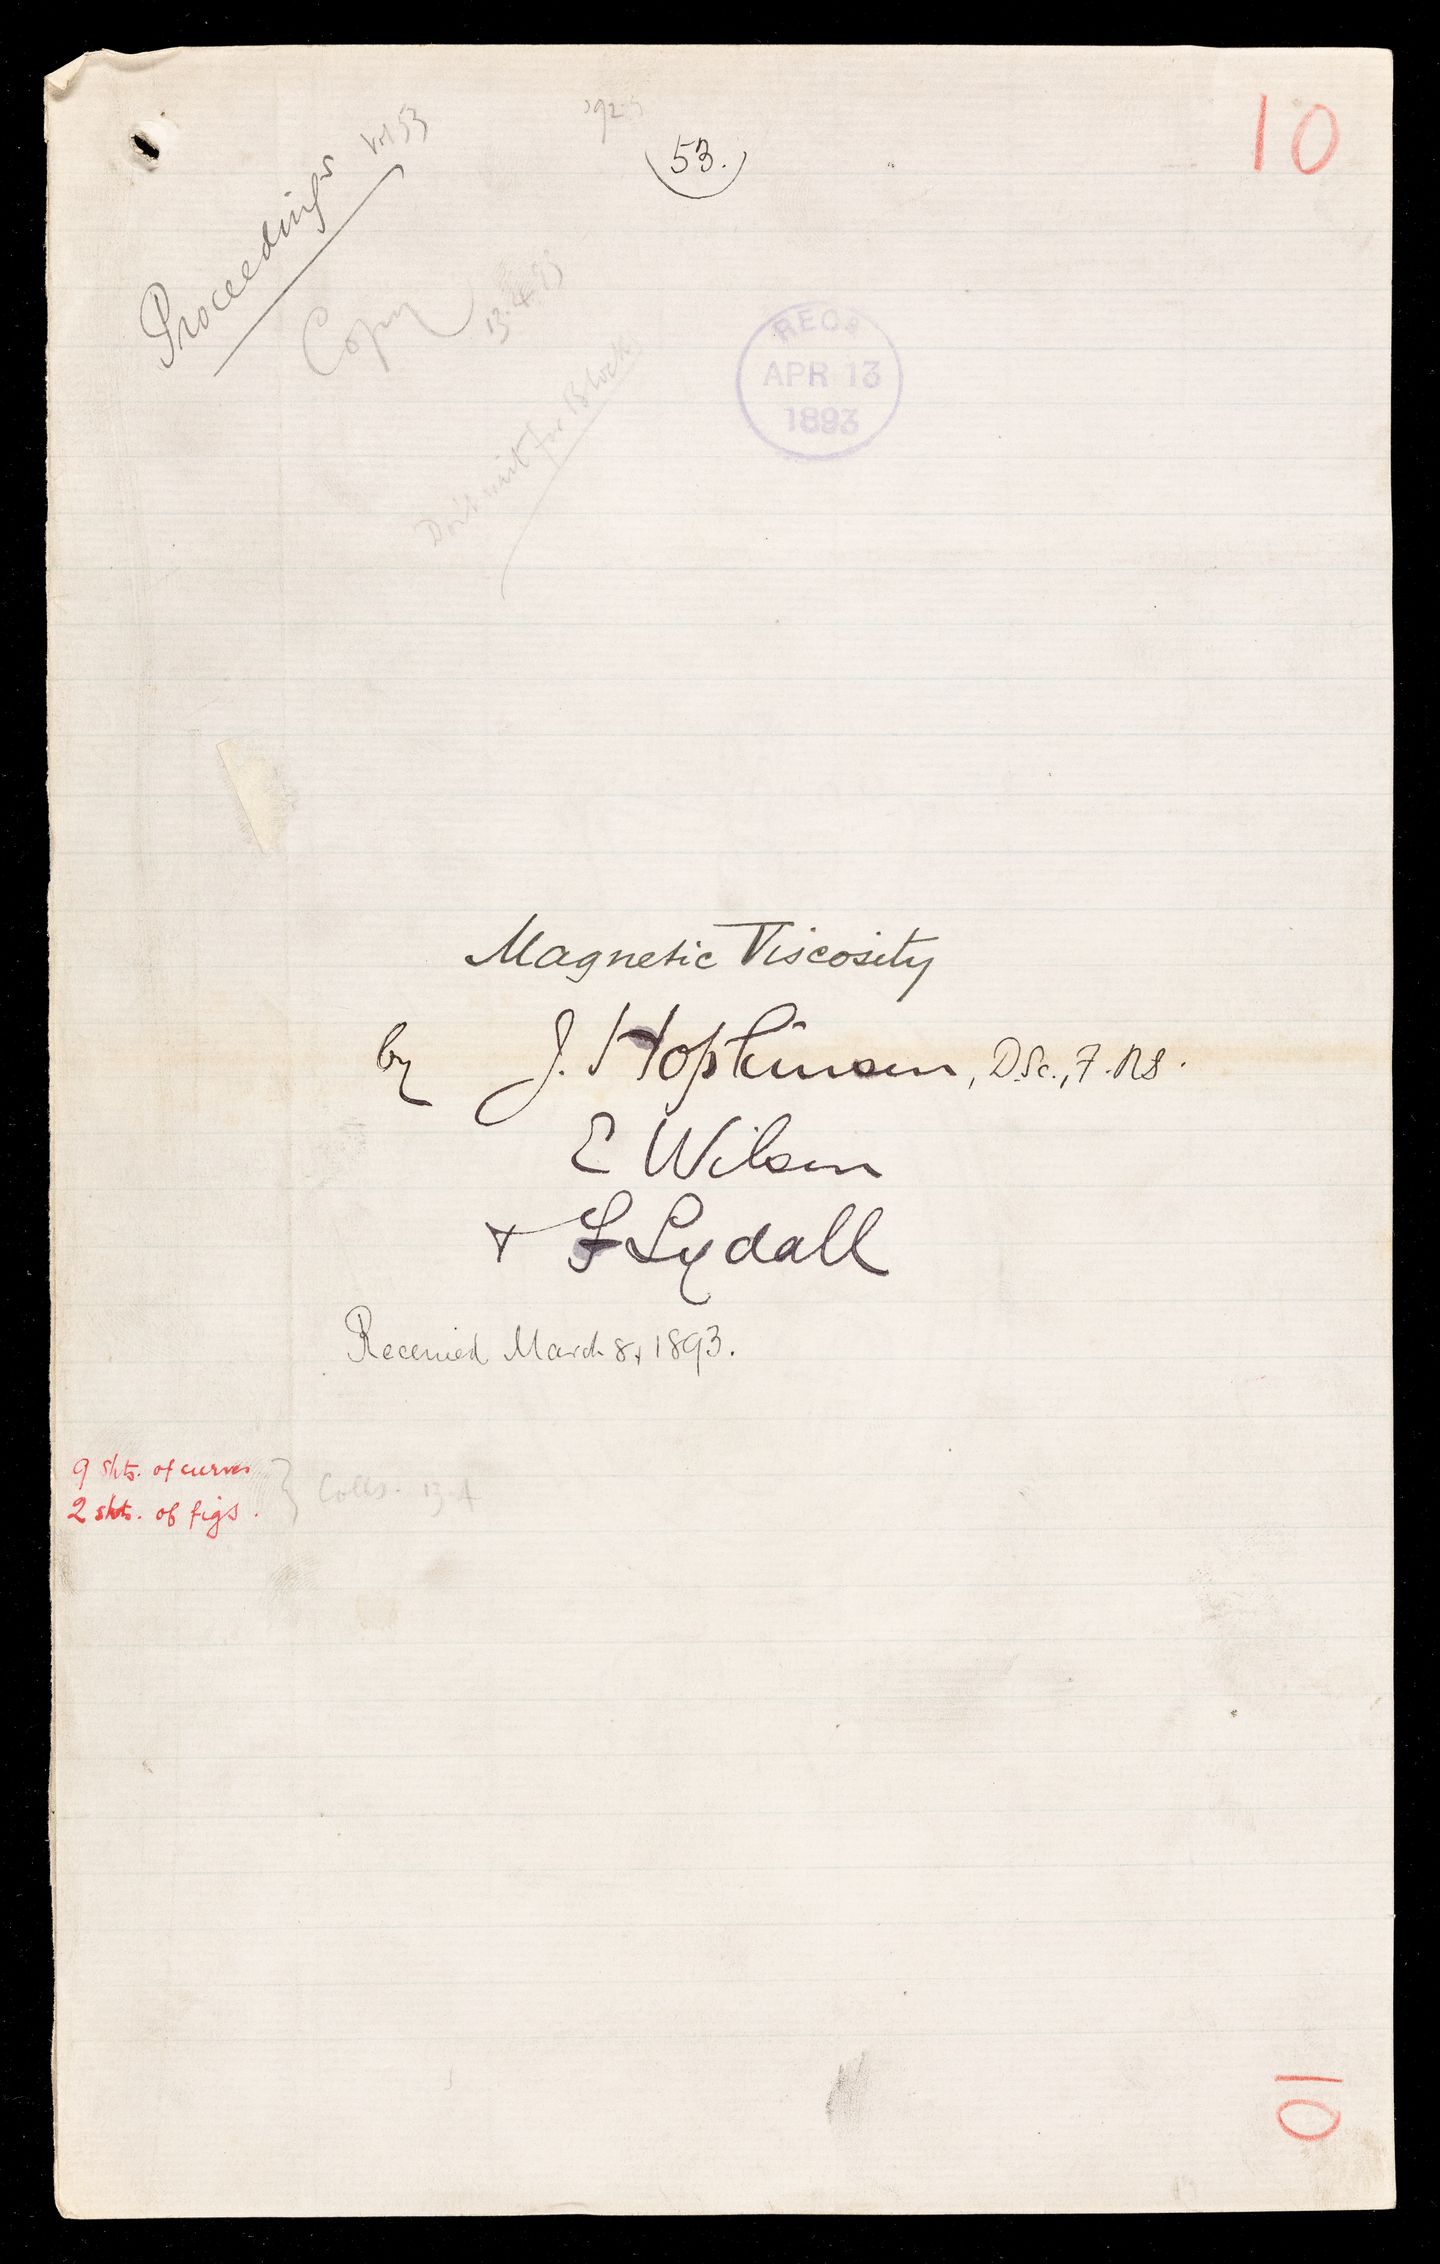 10
(53.)
Proceedings Vol 53
Copy
13.4.93
Don't wait for Block
RECD
APR 13
1893
Magnetic Viscosity
by J. Hopkinson, D.Sc., F.R.S.
E Wilson
+ F Lydall
Received March 8, 1893.
9 shts. of curves
2 shts. of figs.
} Colls. 13.4
10